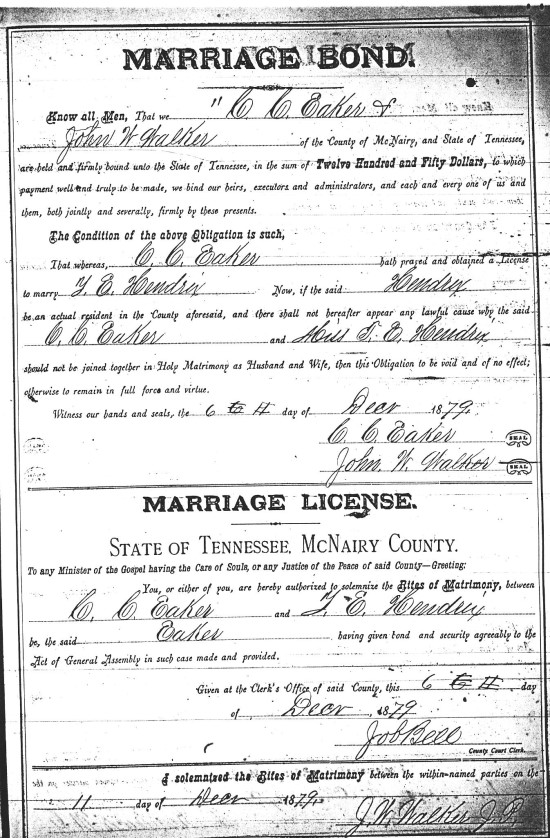 MARRIAGE BOND.
Know all Men, That we " C. C. Eaker &
John W Walker of the County of McNairy, and State of Tennessee,
are held and firmly bound unto the State of Tennessee, in the sum of Twelve Hundred and Fifty Dollars, to which
payment well and truly to be made, we bind our heirs, executors and administrators, and each and every one of us and
them, both jointly and severally, firmly by these presents.
The Condition of the above Obligation is such,
That whereas, C. C. Eaker hath prayed and obtained a License
to marry T. E. Hendrix Now, if the said Hendrix
be an actual resident in the County aforesaid, and there shall not hereafter appear any lawful cause why the said
C. C. Eaker and Miss T. E. Hendrix
should not be joined together in Holy Matrimony as Husband and Wife, then this Obligation to be void and of no effect;
otherwise to remain in full force and virtue.
Witness our hands and seals, the 6 day of Decr 1879.
C. C. Eaker SEAL
John. W. Walker SEAL
MARRIAGE LICENSE.
STATE OF TENNESSEE, MCNAIRY COUNTY.
To any Minister of the Gospel having the Care of Souls, or any Justice of the Peace of said County—Greeting:
You, or either of you, are hereby authorized to solemnize the Rites of Matrimony, between
C. C. Eaker and T. E. Hendrix
be, the said Eaker having given bond and security agreeably to the
Act of General Assembly in such case made and provided.
Given at the Clerk's Office of said County, this 6 day
of Decr 1879
Job Bell
County Court Clerk.
I solemnized the Rites of Matrimony between the within-named parties on the
11 day of Decr 1879.
J. W. Walker J. P.